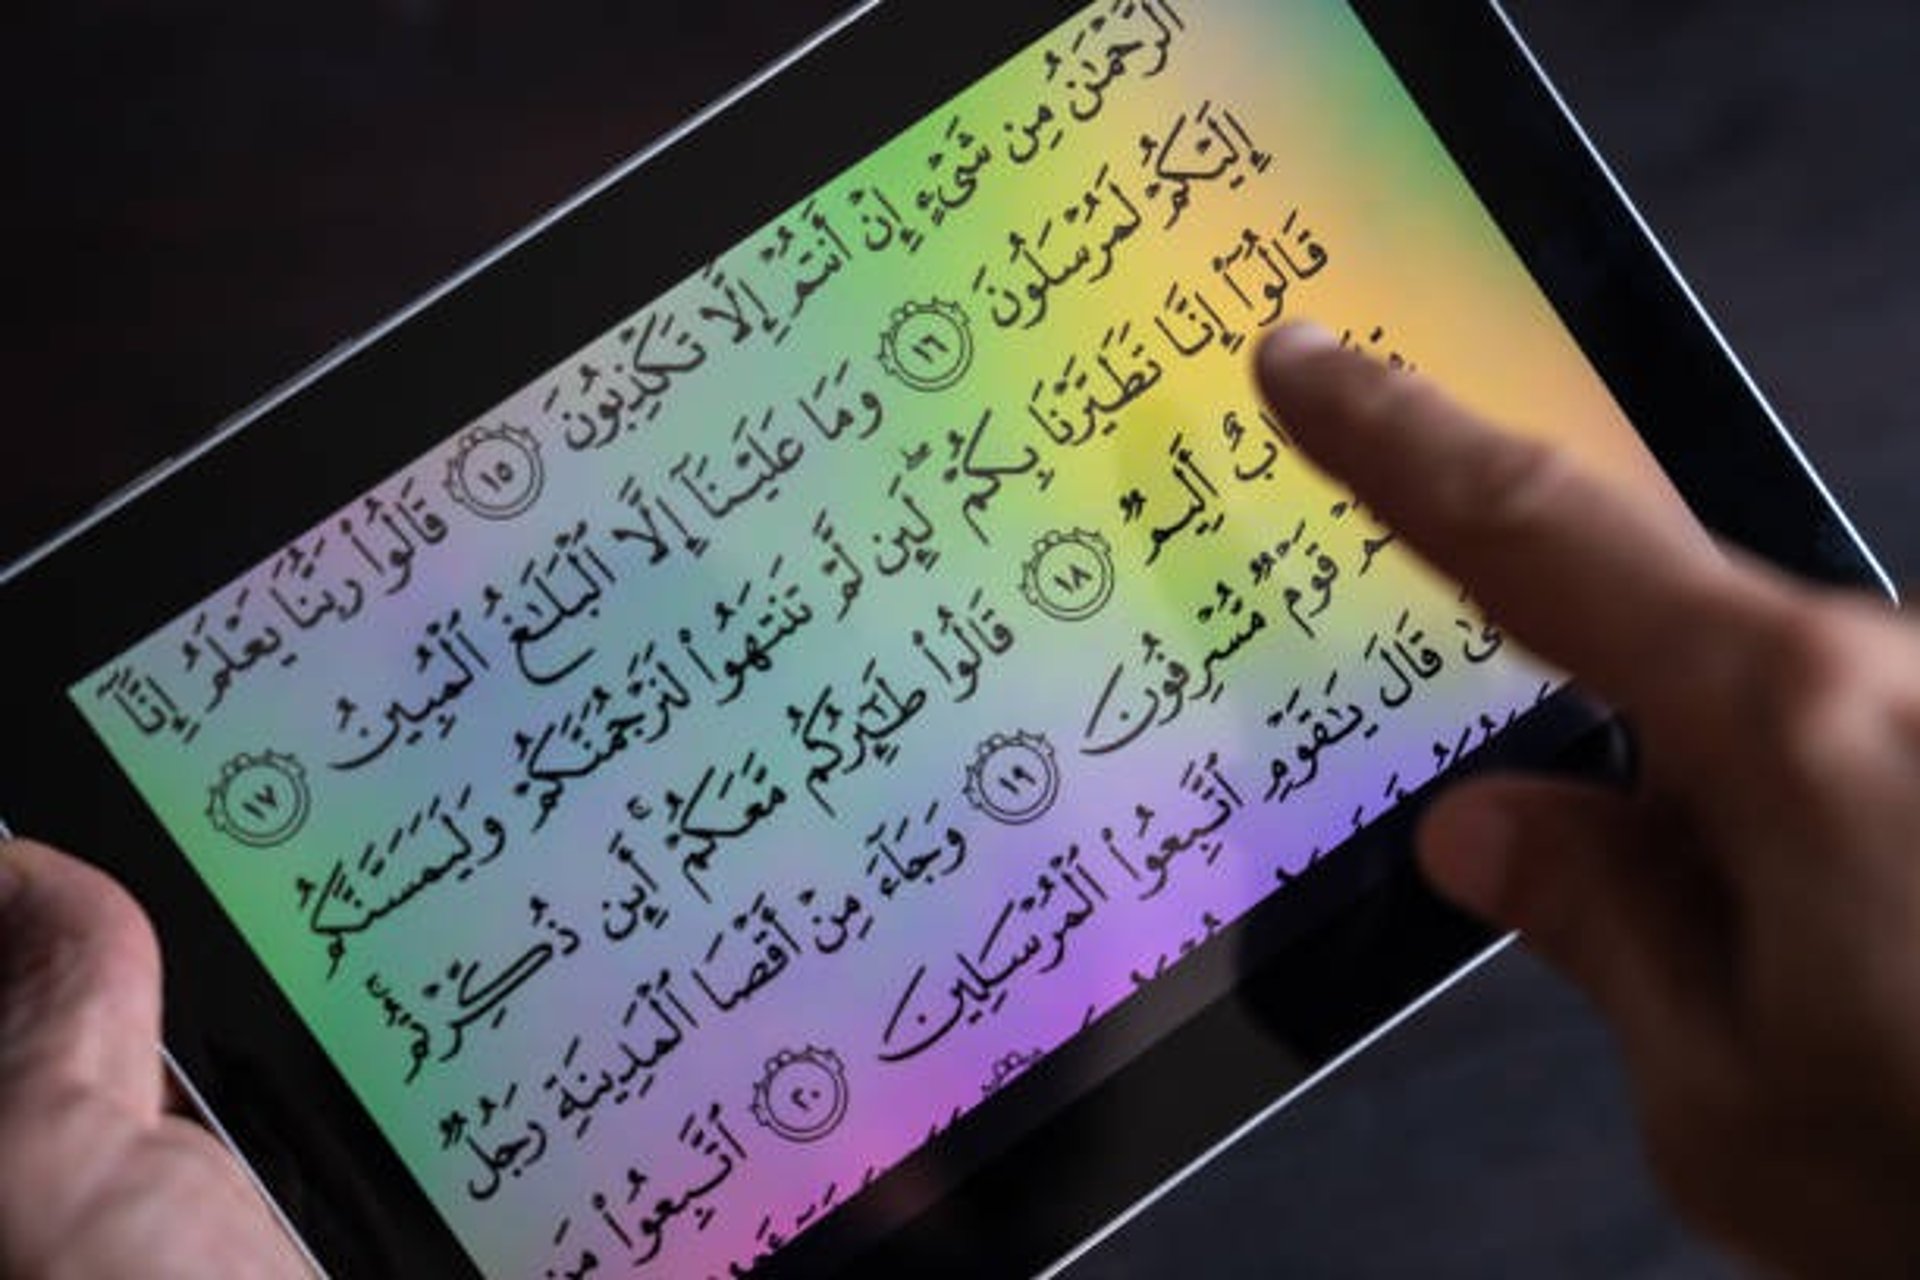 ٱلرَّحْمَٰنُ مِن شَىْءٍ إِنْ أَنتُمْ إِلَّا تَكْذِبُونَ ١٥ قَالُوا۟ رَبُّنَا يَعْلَمُ إِنَّآ
إِلَيْكُمْ لَمُرْسَلُونَ ١٦ وَمَا عَلَيْنَآ إِلَّا ٱلْبَلَٰغُ ٱلْمُبِينُ ١٧
قَالُوٓا۟ إِنَّا تَطَيَّرْنَا بِكُمْ ۖ لَئِن لَّمْ تَنتَهُوا۟ لَنَرْجُمَنَّكُمْ وَلَيَمَسَّنَّكُم
أَلِيمٌ ١٨ قَالُوا۟ طَٰٓئِرُكُم مَّعَكُمْ ۚ أَئِن ذُكِّرْتُم ۚ
قَوْمٌ مُّسْرِفُونَ ١٩ وَجَآءَ مِنْ أَقْصَا ٱلْمَدِينَةِ رَجُلٌ
قَالَ يَٰقَوْمِ ٱتَّبِعُوا۟ ٱلْمُرْسَلِينَ ٢٠ ٱتَّبِعُوا۟ مَن